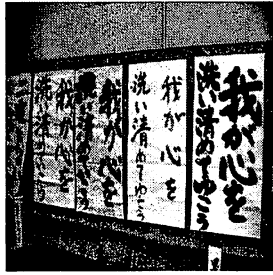 我が心を
洗い清めてゆこう
我が心を
洗い清めてゆこう
我が心を
洗い清めてゆこう
我が心を
洗い清めてゆこう